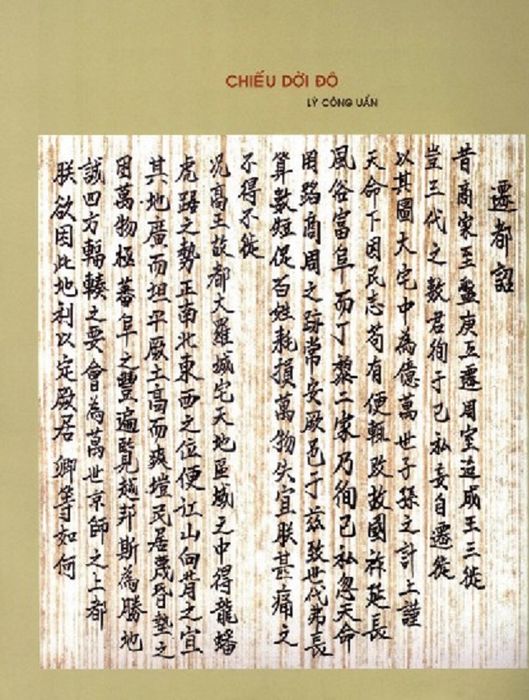 CHIẾU DỜI ĐÔ
LÝ CÔNG UẨN
遷都詔
昔商家至盤庚五遷周室迨成王三徙
豈三代之數君徇于己私妄自遷徙
以其圖大宅中為億萬世子孫之計上謹
天命下因民志苟有便輒改故國祚延長
風俗富阜而丁黎二家乃徇己私忽天命
罔蹈商周之跡常安厥邑于兹致世代弗長
算數短促百姓耗損萬物失宜朕甚痛之
不得不徙
况高王故都大羅城宅天地區域之中得龍蟠
虎踞之勢正南北東西之位便江山向背之宜
其地廣而坦平厥土高而爽塏民居蔑昏墊之
困萬物極蕃阜之豐遍覽越邦斯為勝地
誠四方輻輳之要會為萬世京師之上都
朕欲因此地利以定厥居卿等如何